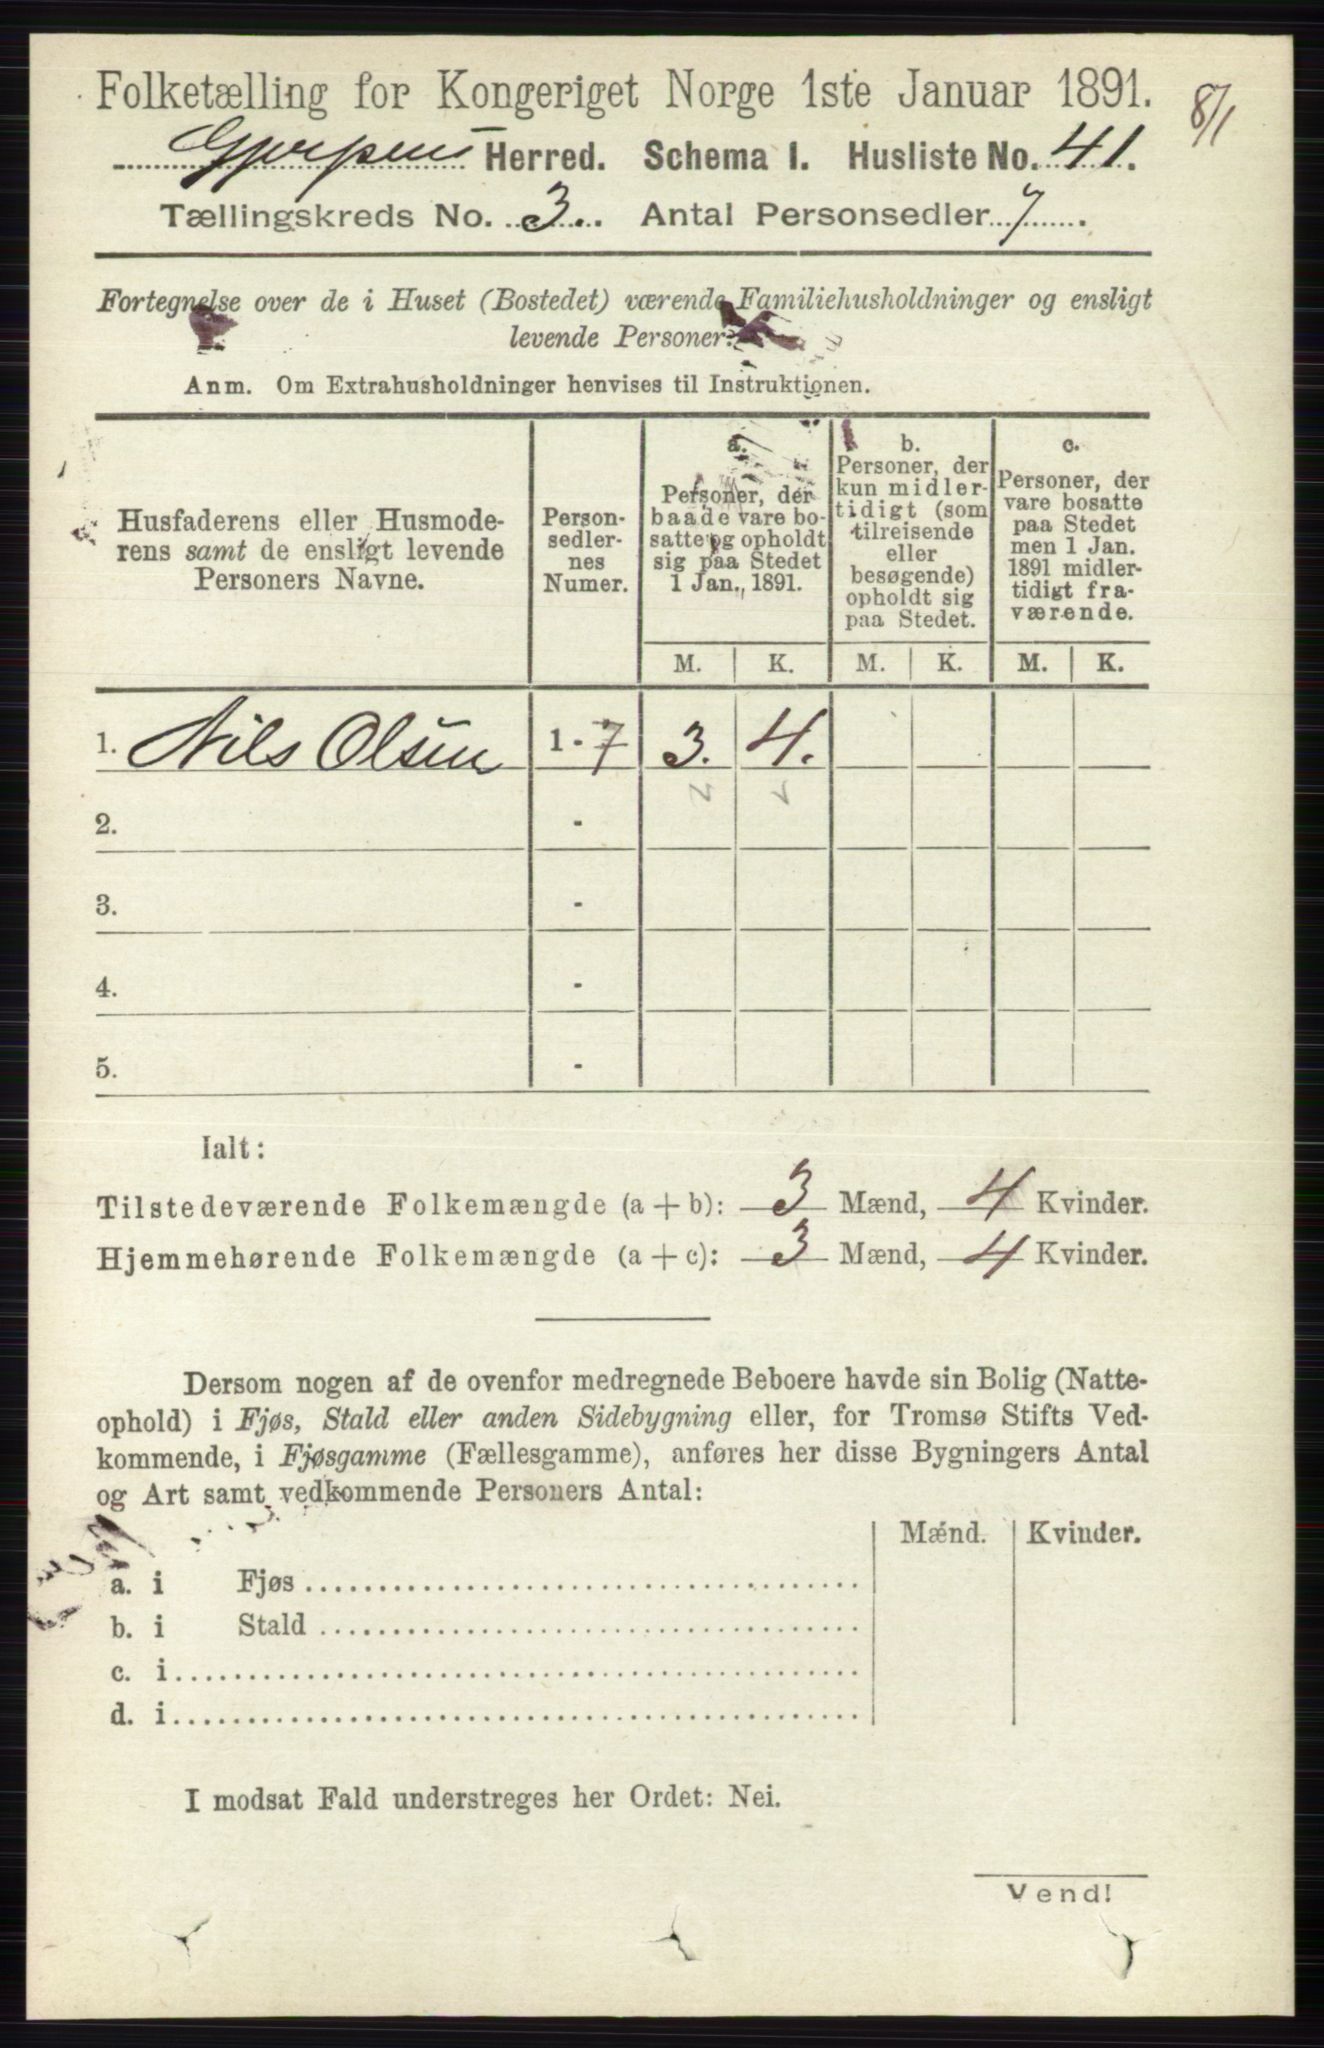 Folketælling for Kongeriget Norge 1ste Januar 1891.
8/1
Gjerpen Herred. Schema I. Husliste No. 41.
Tællingskreds No. 3. Antal Personsedler 7.
Fortegnelse over de i Huset (Bostedet) værende Familiehusholdninger og ensligt
levende Personer.
Anm. Om Extrahusholdninger henvises til Instruktionen.
Husfaderens eller Husmode-
rens samt de ensligt levende
Personers Navne.
Person-
sedler-
nes
Numer.
a.
Personer, der
baade vare bo-
satte og opholdt
sig paa Stedet
1 Jan. 1891.
b.
Personer, der
kun midler-
tidigt (som
tilreisende
eller
besøgende)
opholdt sig
paa Stedet.
c.
Personer, der
vare bosatte
paa Stedet
men 1 Jan.
1891 midler-
tidigt fra-
værende.
M. K. M. K. M. K.
1. Nils Olsen 1 - 7 3. 4.
2. -
3. -
4. -
5. -
Ialt:
Tilstedeværende Folkemængde (a + b): 3 Mænd, 4 Kvinder.
Hjemmehørende Folkemængde (a + c): 3 Mænd, 4 Kvinder.
Dersom nogen af de ovenfor medregnede Beboere havde sin Bolig (Natte-
ophold) i Fjøs, Stald eller anden Sidebygning eller, for Tromsø Stifts Ved-
kommende, i Fjøsgamme (Fællesgamme), anføres her disse Bygningers Antal
og Art samt vedkommende Personers Antal:
Mænd. Kvinder.
a. i Fjøs
b. i Stald
c. i
d. i
I modsat Fald understreges her Ordet: Nei.
Vend!